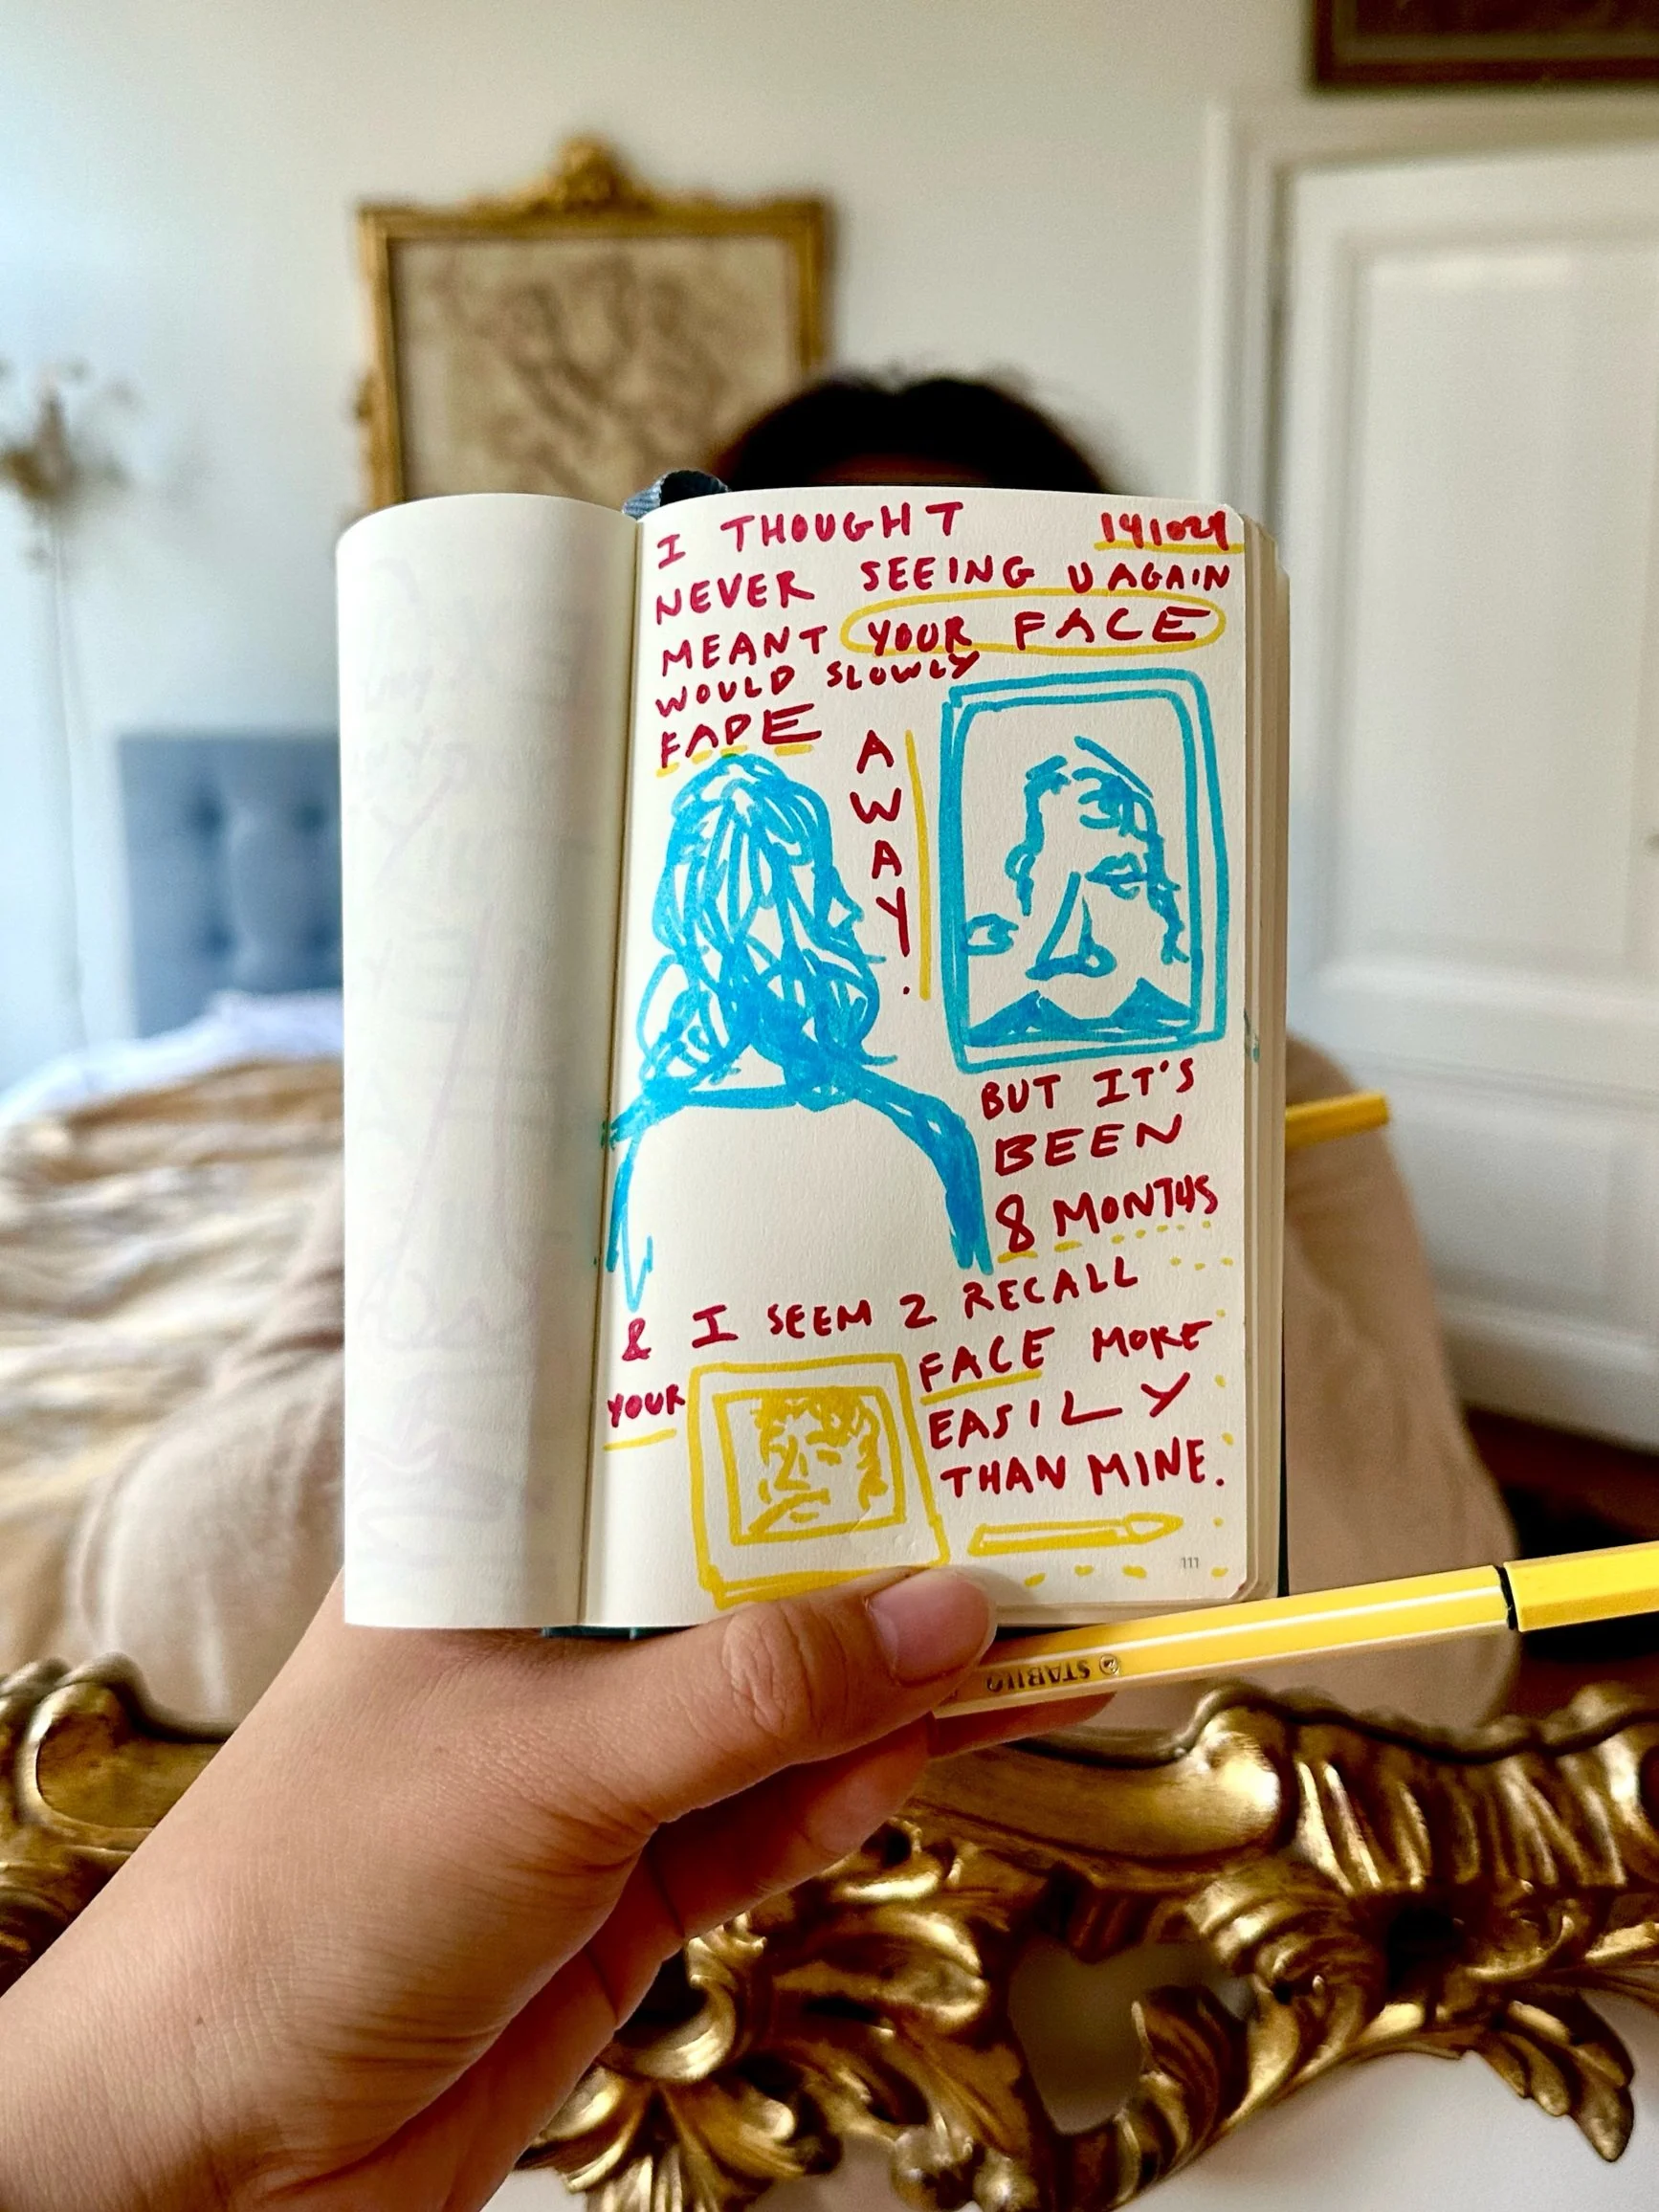 I THOUGHT
141024
NEVER SEEING U AGAIN
MEANT YOUR FACE
WOULD SLOWLY
FADE
AWAY.
BUT IT'S
BEEN
8 MONTHS
& I SEEM 2 RECALL
YOUR
FACE MORE
EASILY
THAN MINE.
111
STABILO